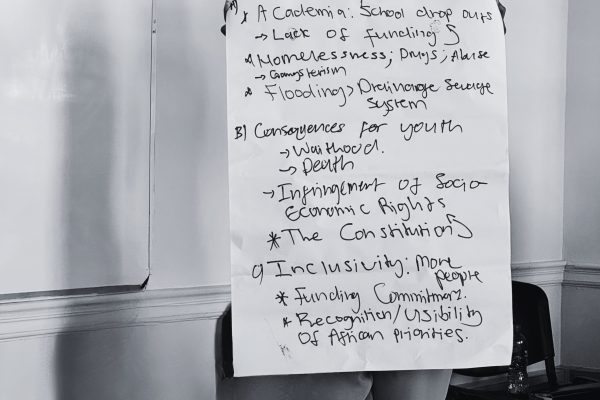 A) * Academia: School drop outs
→ Lack of funding
* Homelessness; Drugs; Abuse
→ Gangsterism
* Flooding > Drainage Sewage
System
B) Consequences for youth
→ Waithood.
→ Death
→ Infringement of Socio
Economic Rights
* The Constitution
C) Inclusivity: More
people
* Funding Commitment.
* Recognition/Visibility
Of African priorities.